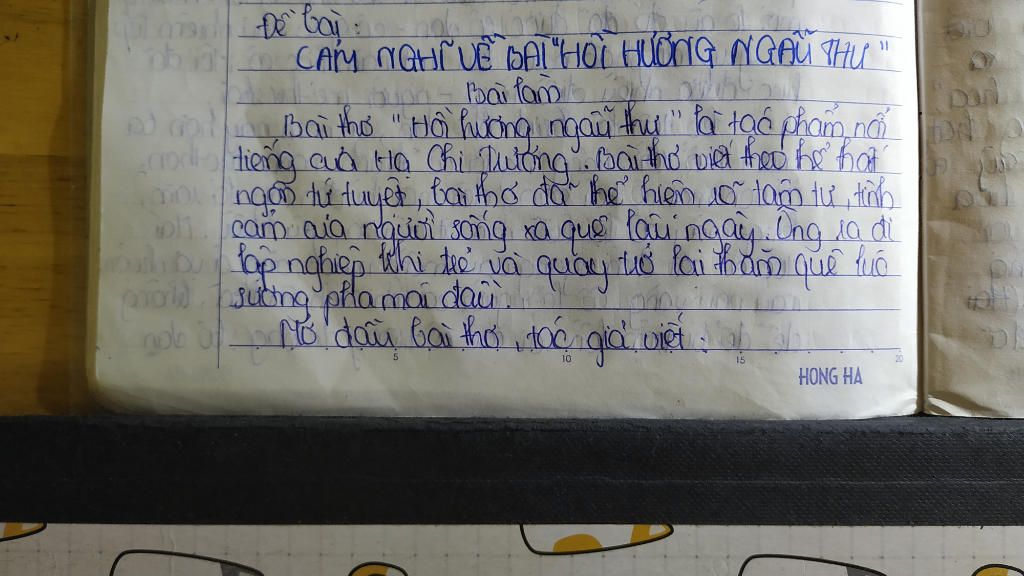 Đề bài:
CẢM NGHĨ VỀ BÀI "HỒI HƯƠNG NGẪU THƯ"
Bài làm
Bài thơ "Hồi hương ngẫu thư" là tác phẩm nổi
tiếng của Hạ Chi Trương. Bài thơ viết theo thể thất
ngôn tứ tuyệt, bài thơ đã thể hiện rõ tâm tư, tình
cảm của người sống xa quê lâu ngày. Ông ra đi
lập nghiệp khi trẻ và quay trở lại thăm quê lúc
sương pha mái đầu.
Mở đầu bài thơ, tác giả viết:
5 10 15 20
HONG HA